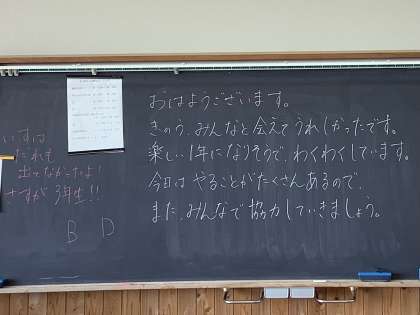 おはようございます。
きのう、みんなと会えてうれしかったです。
楽しい1年になりそうで、わくわくしています。
今日は やることがたくさんあるので、
また、みんなで協力していきましょう。
いすは
だれも
出てなかったよ!
さすが 3年生!!
B D